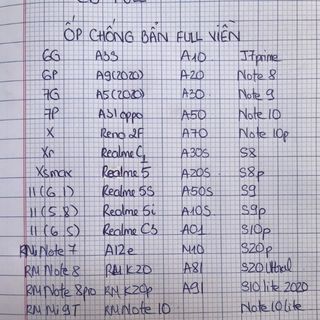 ỐP CHỐNG BẨN FULL VIỀN
6G A3S A10 J7prime
6P A9(2020) A20 Note 8
7G A5(2020) A30 Note 9
7P A31 oppo A50 Note 10
X Reno 2F A70 Note 10p
Xr Realme C1 A30S S8
Xsmax Realme 5 A20S S8p
11(6.1) Realme 5S A50S S9
11(5.8) Realme 5i A10S S9p
11(6.5) Realme C3 A01 S10p
RMi Note 7 A12e M10 S20p
RM Note 8 RM K20 A81 S20 Ultral
RM Note 8pro RM K20p A91 S10 lite 2020
RM Mi 9T RM Note 10 Note 10 lite